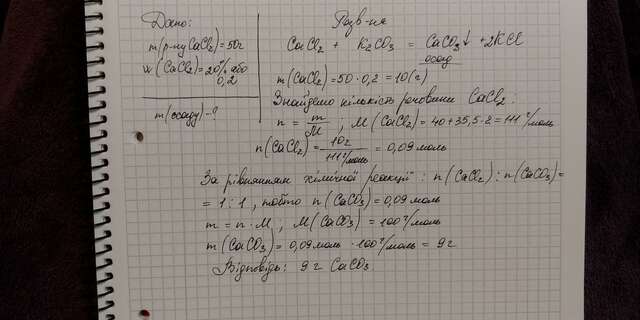 Дано:
m(р-ну CaCl₂)=50г
w(CaCl₂)=20% або
0,2
m(осаду)-?
Розв-ня
CaCl₂ + K₂CO₃ = CaCO₃↓ +2KCl
осад
m(CaCl₂)=50·0,2=10(г)
Знайдемо кількість речовини CaCl₂:
n = m/M ; M(CaCl₂)=40+35,5·2=111 г/моль
n(CaCl₂)= 10г/111 г/моль = 0,09 моль
За рівнянням хімічної реакції: n(CaCl₂):n(CaCO₃)=
= 1:1, тобто n(CaCO₃)=0,09 моль
m = n·M; M(CaCO₃)=100 г/моль
m(CaCO₃)=0,09 моль·100 г/моль = 9г
Відповідь: 9 г CaCO₃